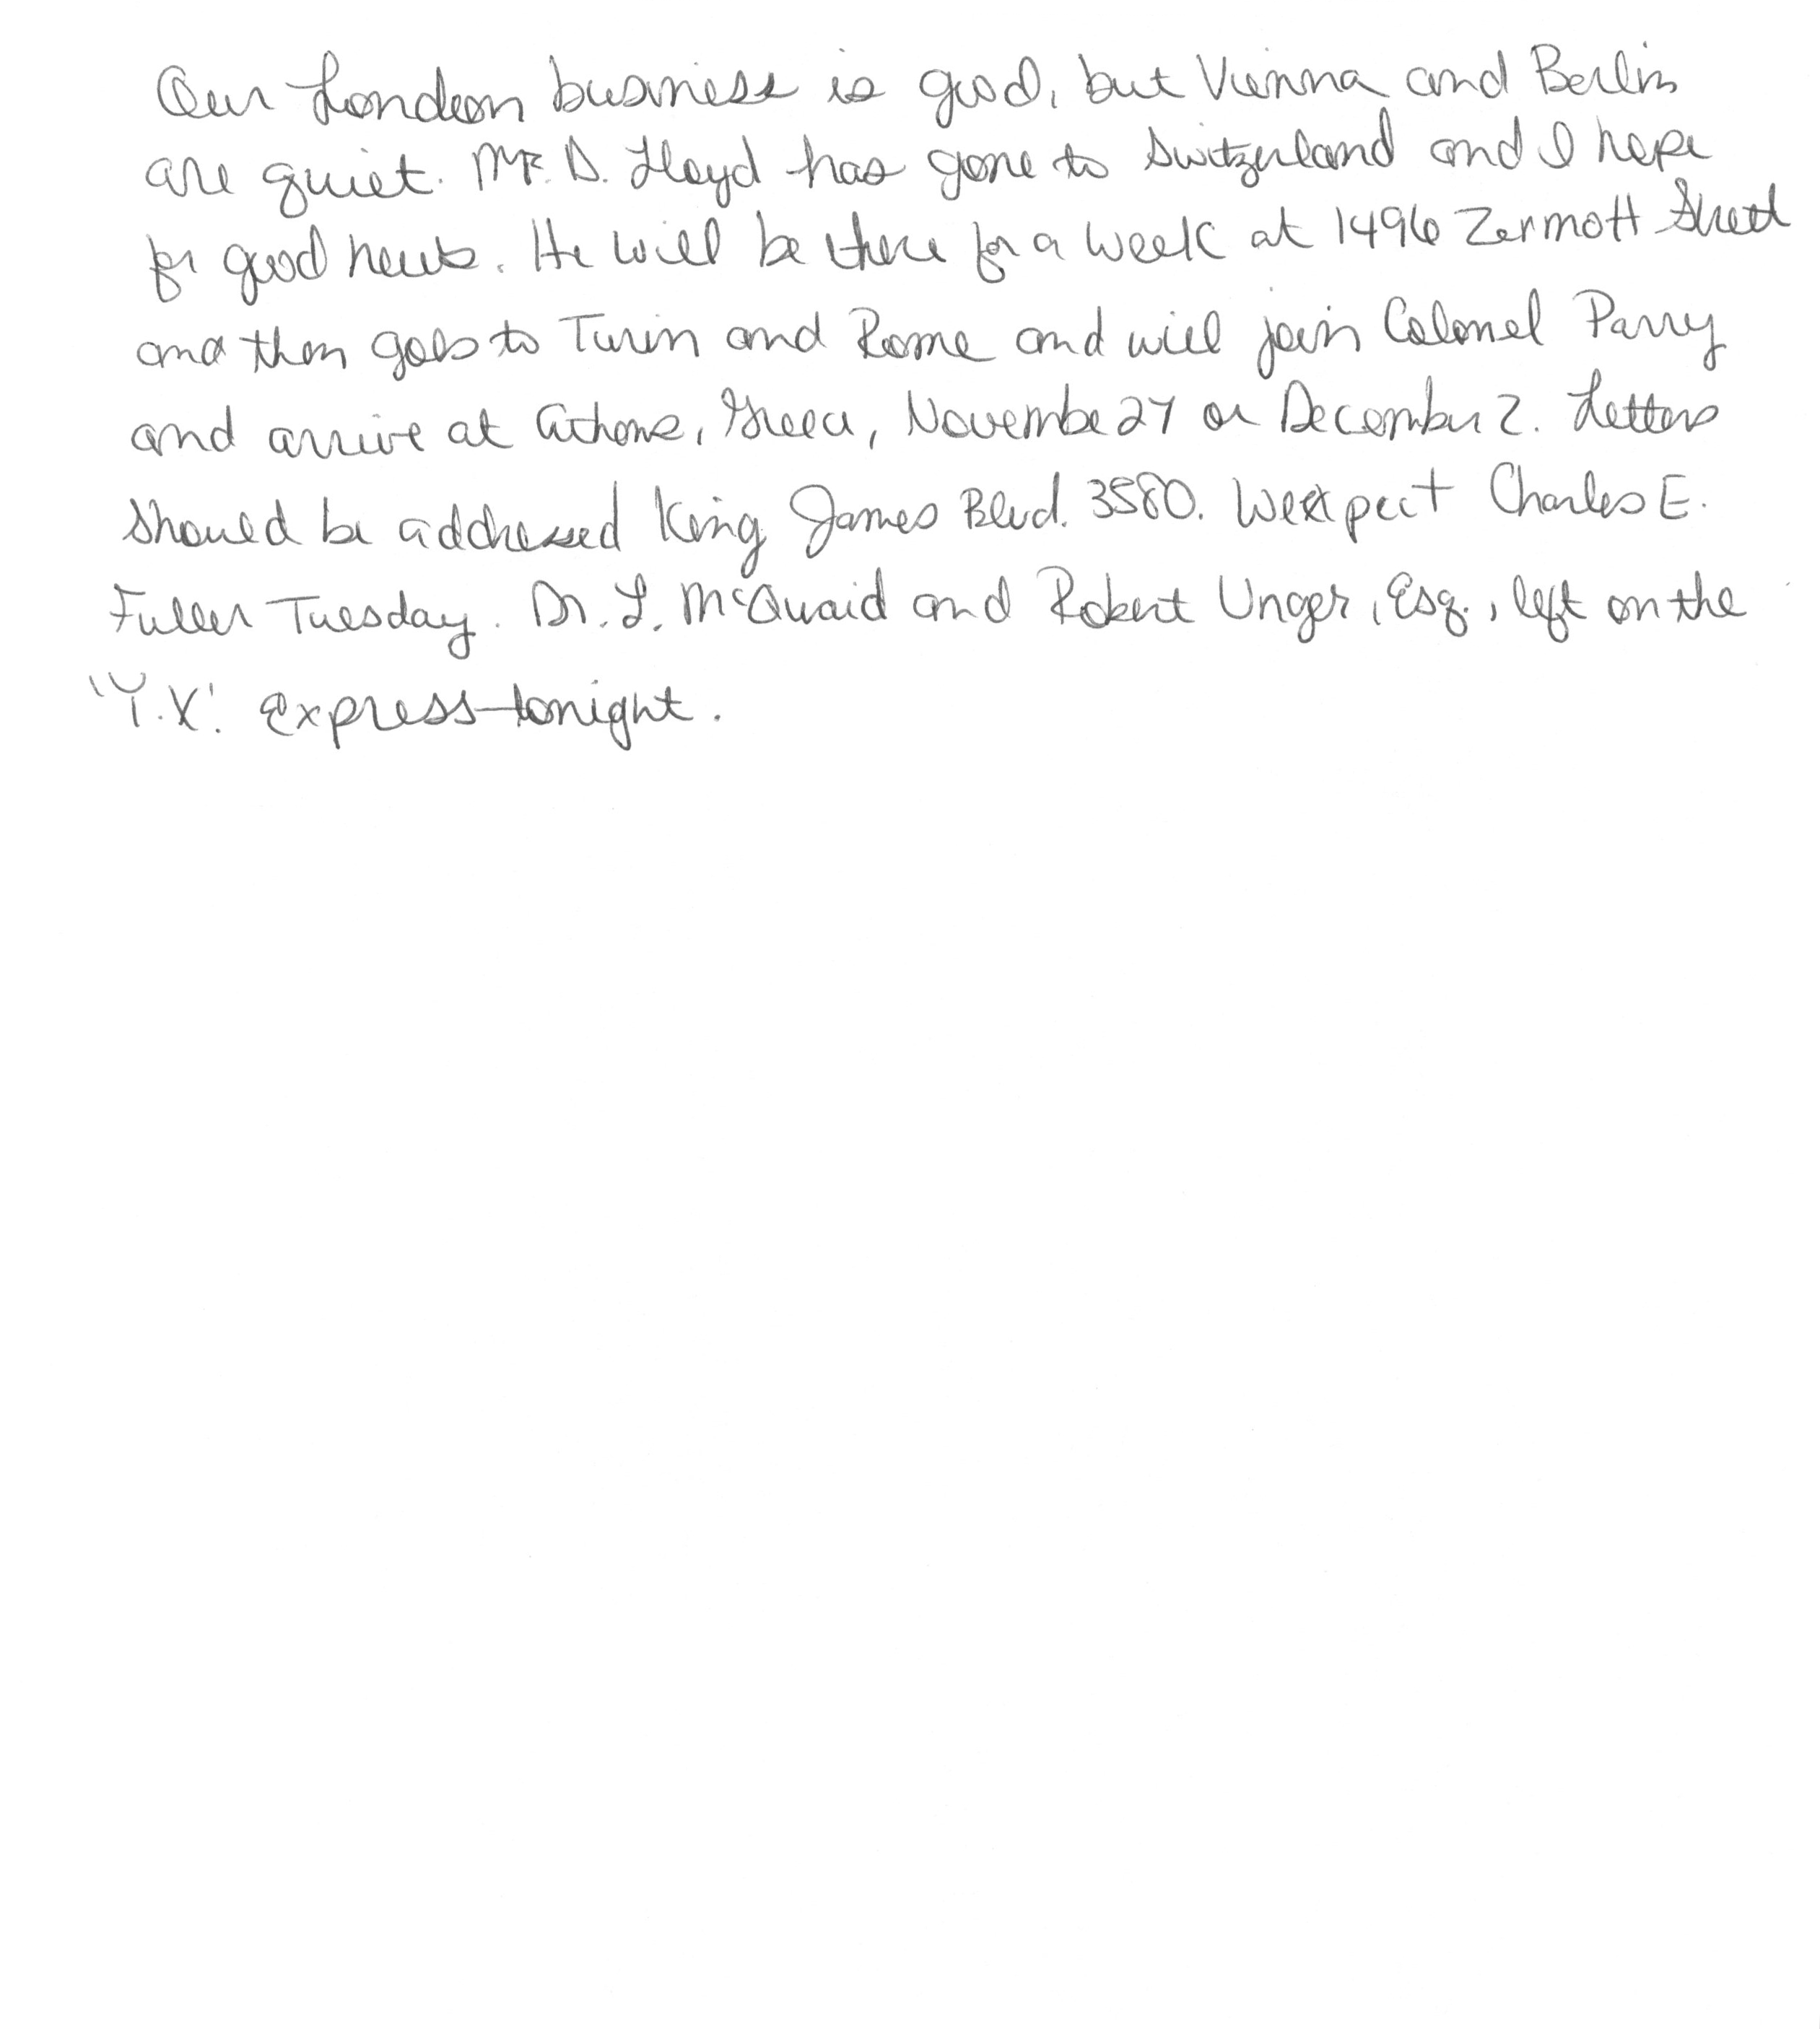 Our London business is good, but Vienna and Berlin
are quiet. Mr. D. Lloyd has gone to Switzerland and I hope
for good news. He will be there for a week at 1496 Zermott Street
and then goes to Turin and Rome and will join Colonel Parry
and arrive at Athens, Greece, Novembe 27 or December 2. Letters
should be addressed King James Blvd. 3580. We expect Charles E.
Fuller Tuesday. Dr. L. McQuaid and Robert Unger, Esq., left on the
'Y.X.' Express tonight.